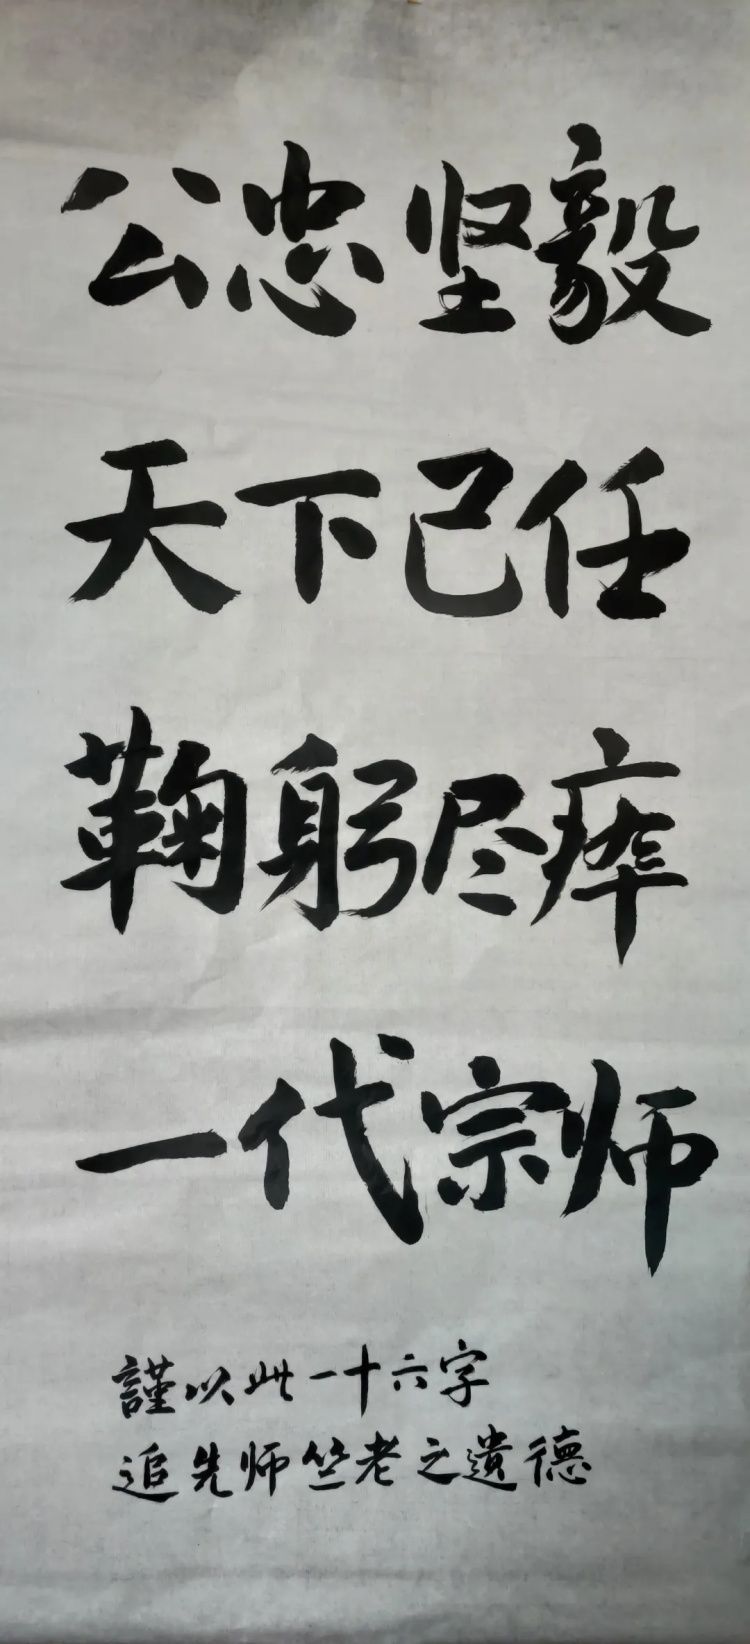 公忠坚毅
天下己任
鞠躬尽瘁
一代宗师
謹以此一十六字
追先师竺老之遺德